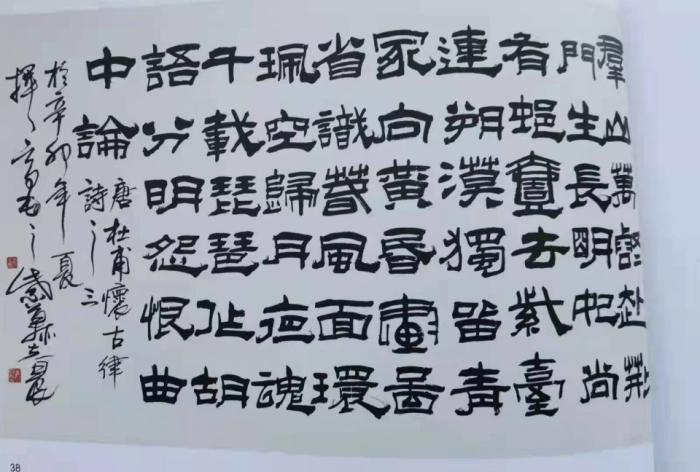 羣山萬壑赴荊
門生長明妃尚
有邨壹去紫臺
連朔漠獨留青
冢向黃昏畫啚
省識春風面環
珮空歸月夜魂
千載琵琶作胡
語分明怨恨曲
中論
唐杜甫懷古律
詩之三
於辛卯年夏
38